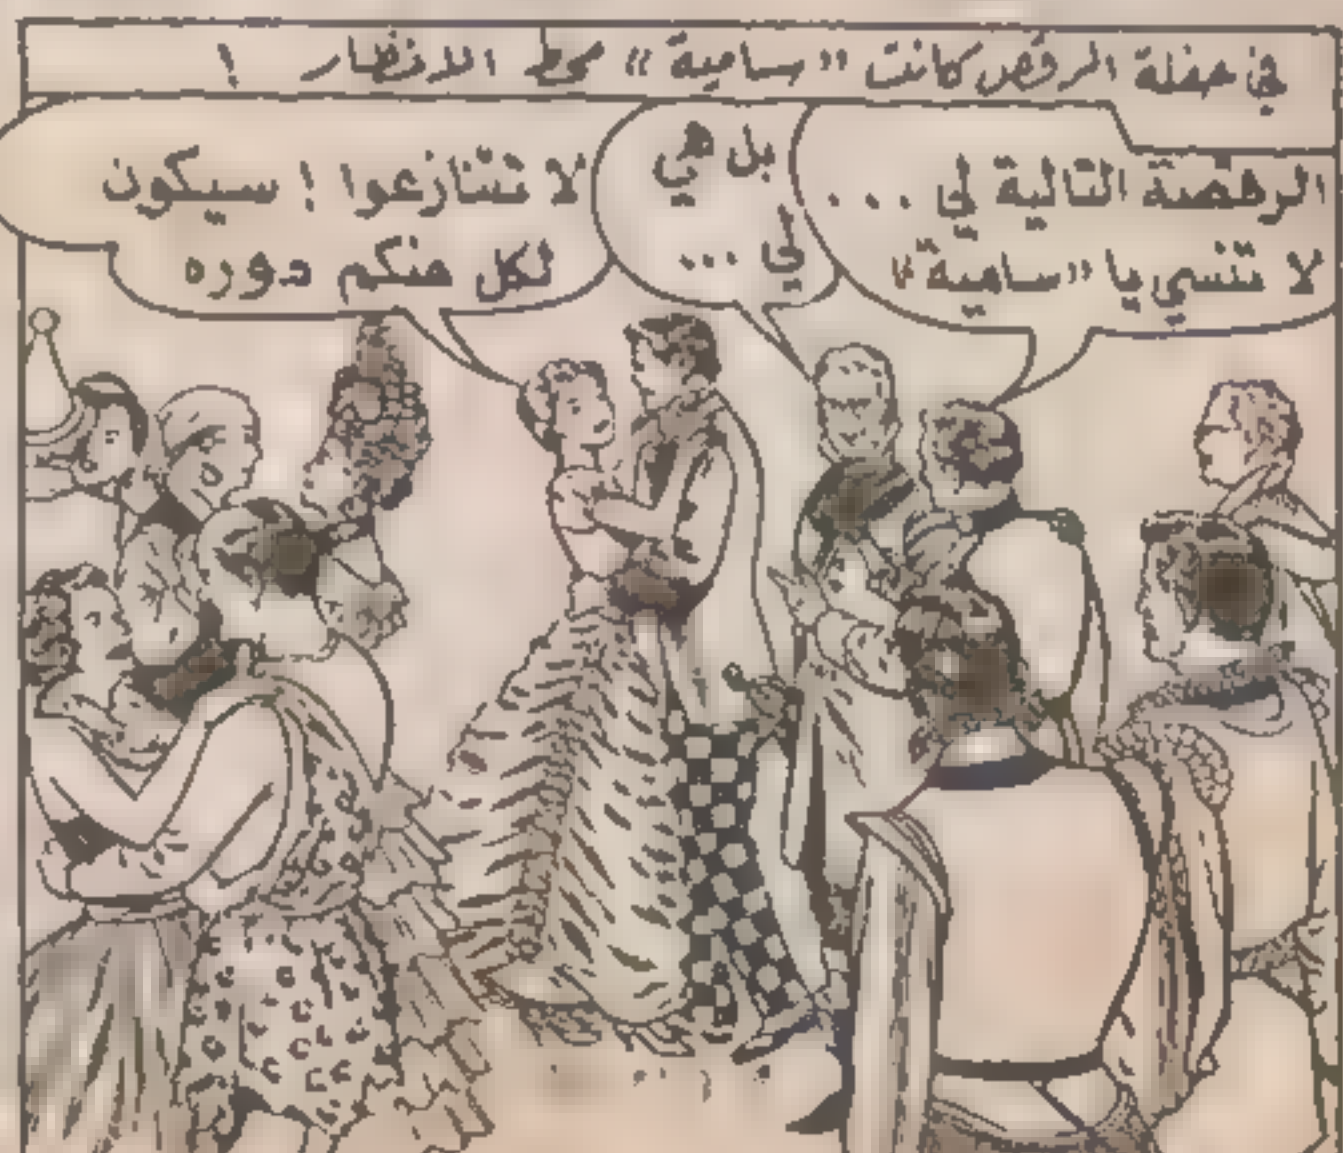 في حفلة الرقص كانت «سامية» محط الانظار !
الرقصة التالية لي ...
لا تنسي يا «سامية»
بل هي
لي ...
لا تتنازعوا ! سيكون
لكل منكم دوره